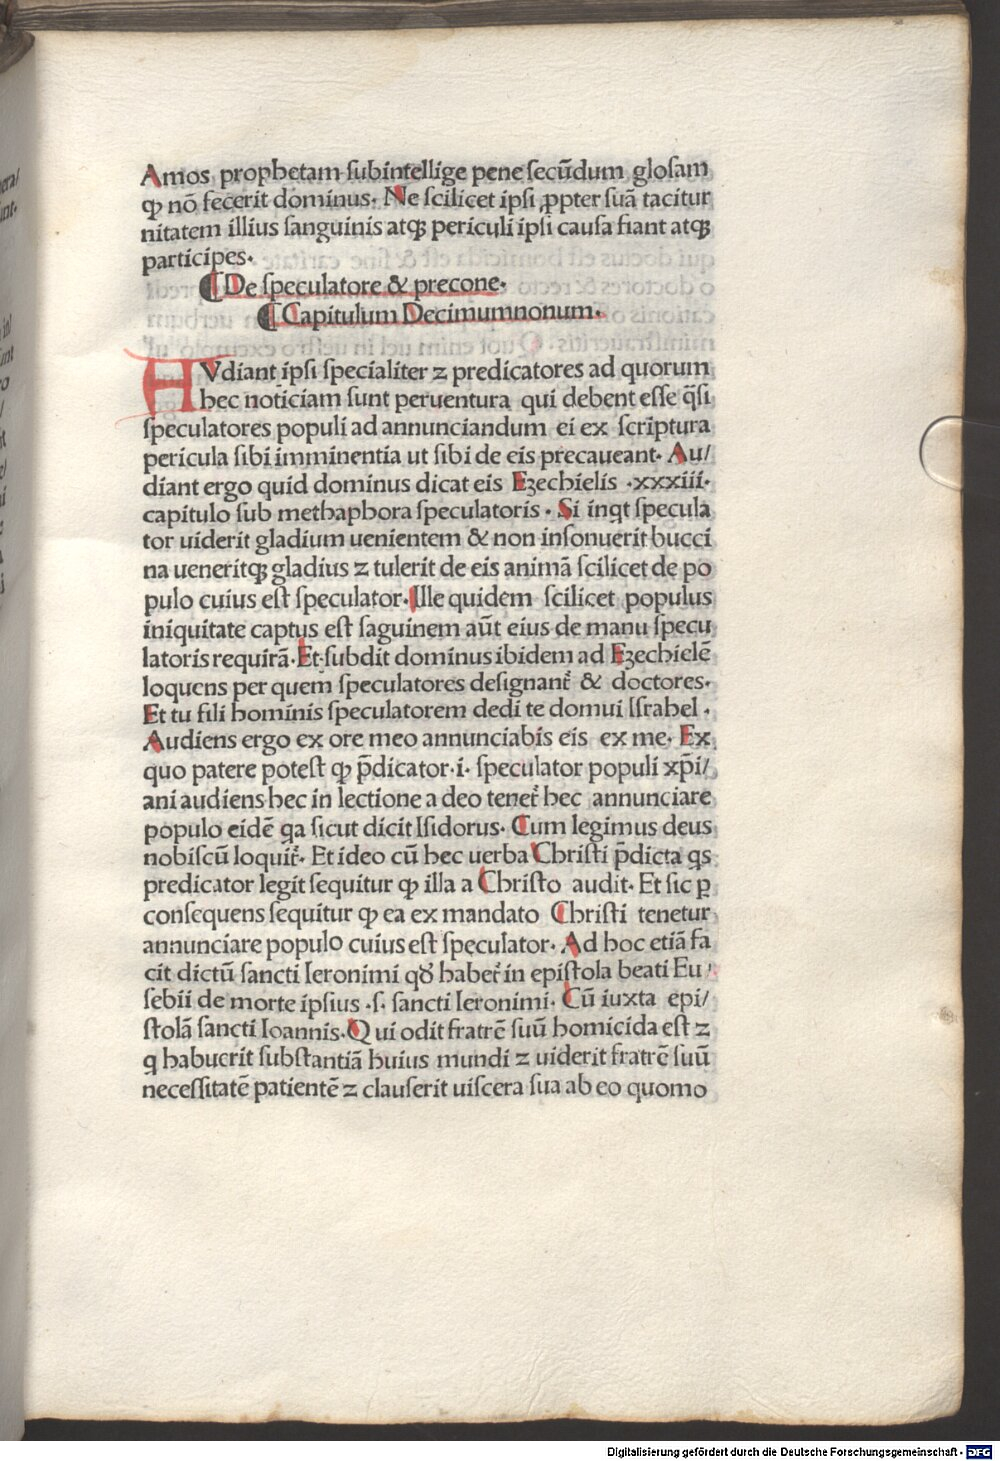 Amos prophetam subintellige pene secūdum glosam
ꝙ nō fecerit dominus. Ne scilicet ipsi ꝓpter suā tacitur
nitatem illius sanguinis atqꝫ periculi ipsi causa fiant atqꝫ
participes.
¶ De speculatore & precone.
¶ Capitulum Decimumnonum.
AVdiant ipsi specialiter ⁊ predicatores ad quorum
hec noticiam sunt peruentura qui debent esse q̄si
speculatores populi ad annunciandum ei ex scriptura
pericula sibi imminentia ut sibi de eis precaueant. Au/
diant ergo quid dominus dicat eis Ezechielis .xxxiii.
capitulo sub methaphora speculatoris. Si inqt specula
tor uiderit gladium uenientem & non insonuerit bucci
na ueneritqꝫ gladius ⁊ tulerit de eis animā scilicet de po
pulo cuius est speculator. Ille quidem scilicet populus
iniquitate captus est saguinem aūt eius de manu specu
latoris requirā. Et subdit dominus ibidem ad Ezechielē
loquens per quem speculatores designant᷑ & doctores.
Et tu fili hominis speculatorem dedi te domui Israhel.
Audiens ergo ex ore meo annunciabis eis ex me. Ex
quo patere potest ꝙ p̄dicator .i. speculator populi xp̄i/
ani audiens hec in lectione a deo tenet᷑ hec annunciare
populo eidē qa sicut dicit Isidorus. Cum legimus deus
nobiscū loquit᷑. Et ideo cū hec uerba Christi p̄dicta qs
predicator legit sequitur ꝙ illa a Christo audit. Et sic ꝑ
consequens sequitur ꝙ ea ex mandato Christi tenetur
annunciare populo cuius est speculator. Ad hoc etiā fa
cit dictū sancti Ieronimi qꝺ habet᷑ in epistola beati Eu/
sebii de morte ipsius .s. sancti Ieronimi. Cū iuxta epi/
stolā sancti Ioannis. Qui odit fratrē suū homicida est ⁊
q habuerit substantiā huius mundi ⁊ uiderit fratrē suū
necessitatē patientē ⁊ clauserit uiscera sua ab eo quomo
Digitalisierung gefördert durch die Deutsche Forschungsgemeinschaft - DFG